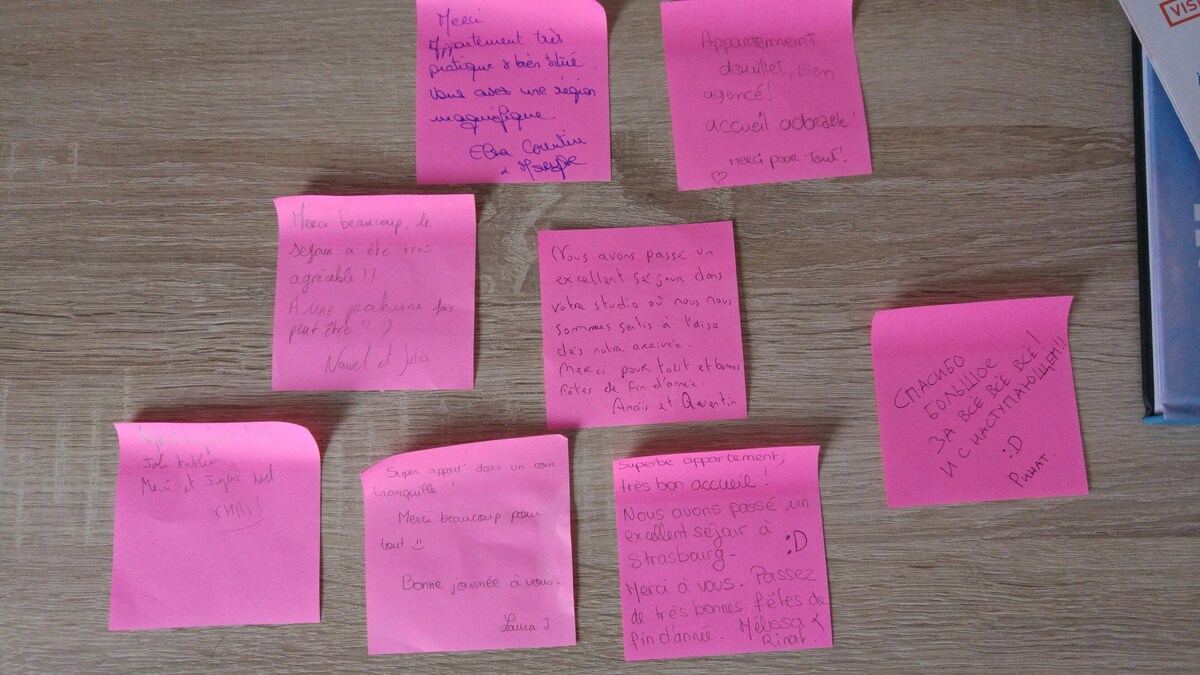 Merci
Appartement très
pratique & bien situé.
Vous avez une région
magnifique
Elsa Corentin
&
Appartement
douillet, bien
agencé!
accueil adorable!
Merci pour Tout!
♡
Merci beaucoup, le
séjour a été très
agréable!!
A une prochaine fois
peut être!! :)
Nawel et Julia
Nous avons passé un
excellent séjour dans
votre studio où nous nous
sommes sentis à l'aise
dès notre arrivée.
Merci pour tout et bonnes
fêtes de fin d'année
Anaïs et Quentin
СПАСИБО
БОЛЬШОЕ
ЗА ВСЁ ВСЁ ВСЁ!
И С НАСТУПАЮЩЕМ!!
:D
Ринат.
Merci et Noel
Super appart' dans un coin
tranquille!
Merci beaucoup pour
tout
Bonne journée à vous..
Laura J.
Superbe appartement,
très bon accueil!
Nous avons passé un
excellent séjour à
Strasbourg- :D
Merci à vous. Passez
de très bonnes fêtes de
fin d'année. Mélissa &
Rinat.
VIS